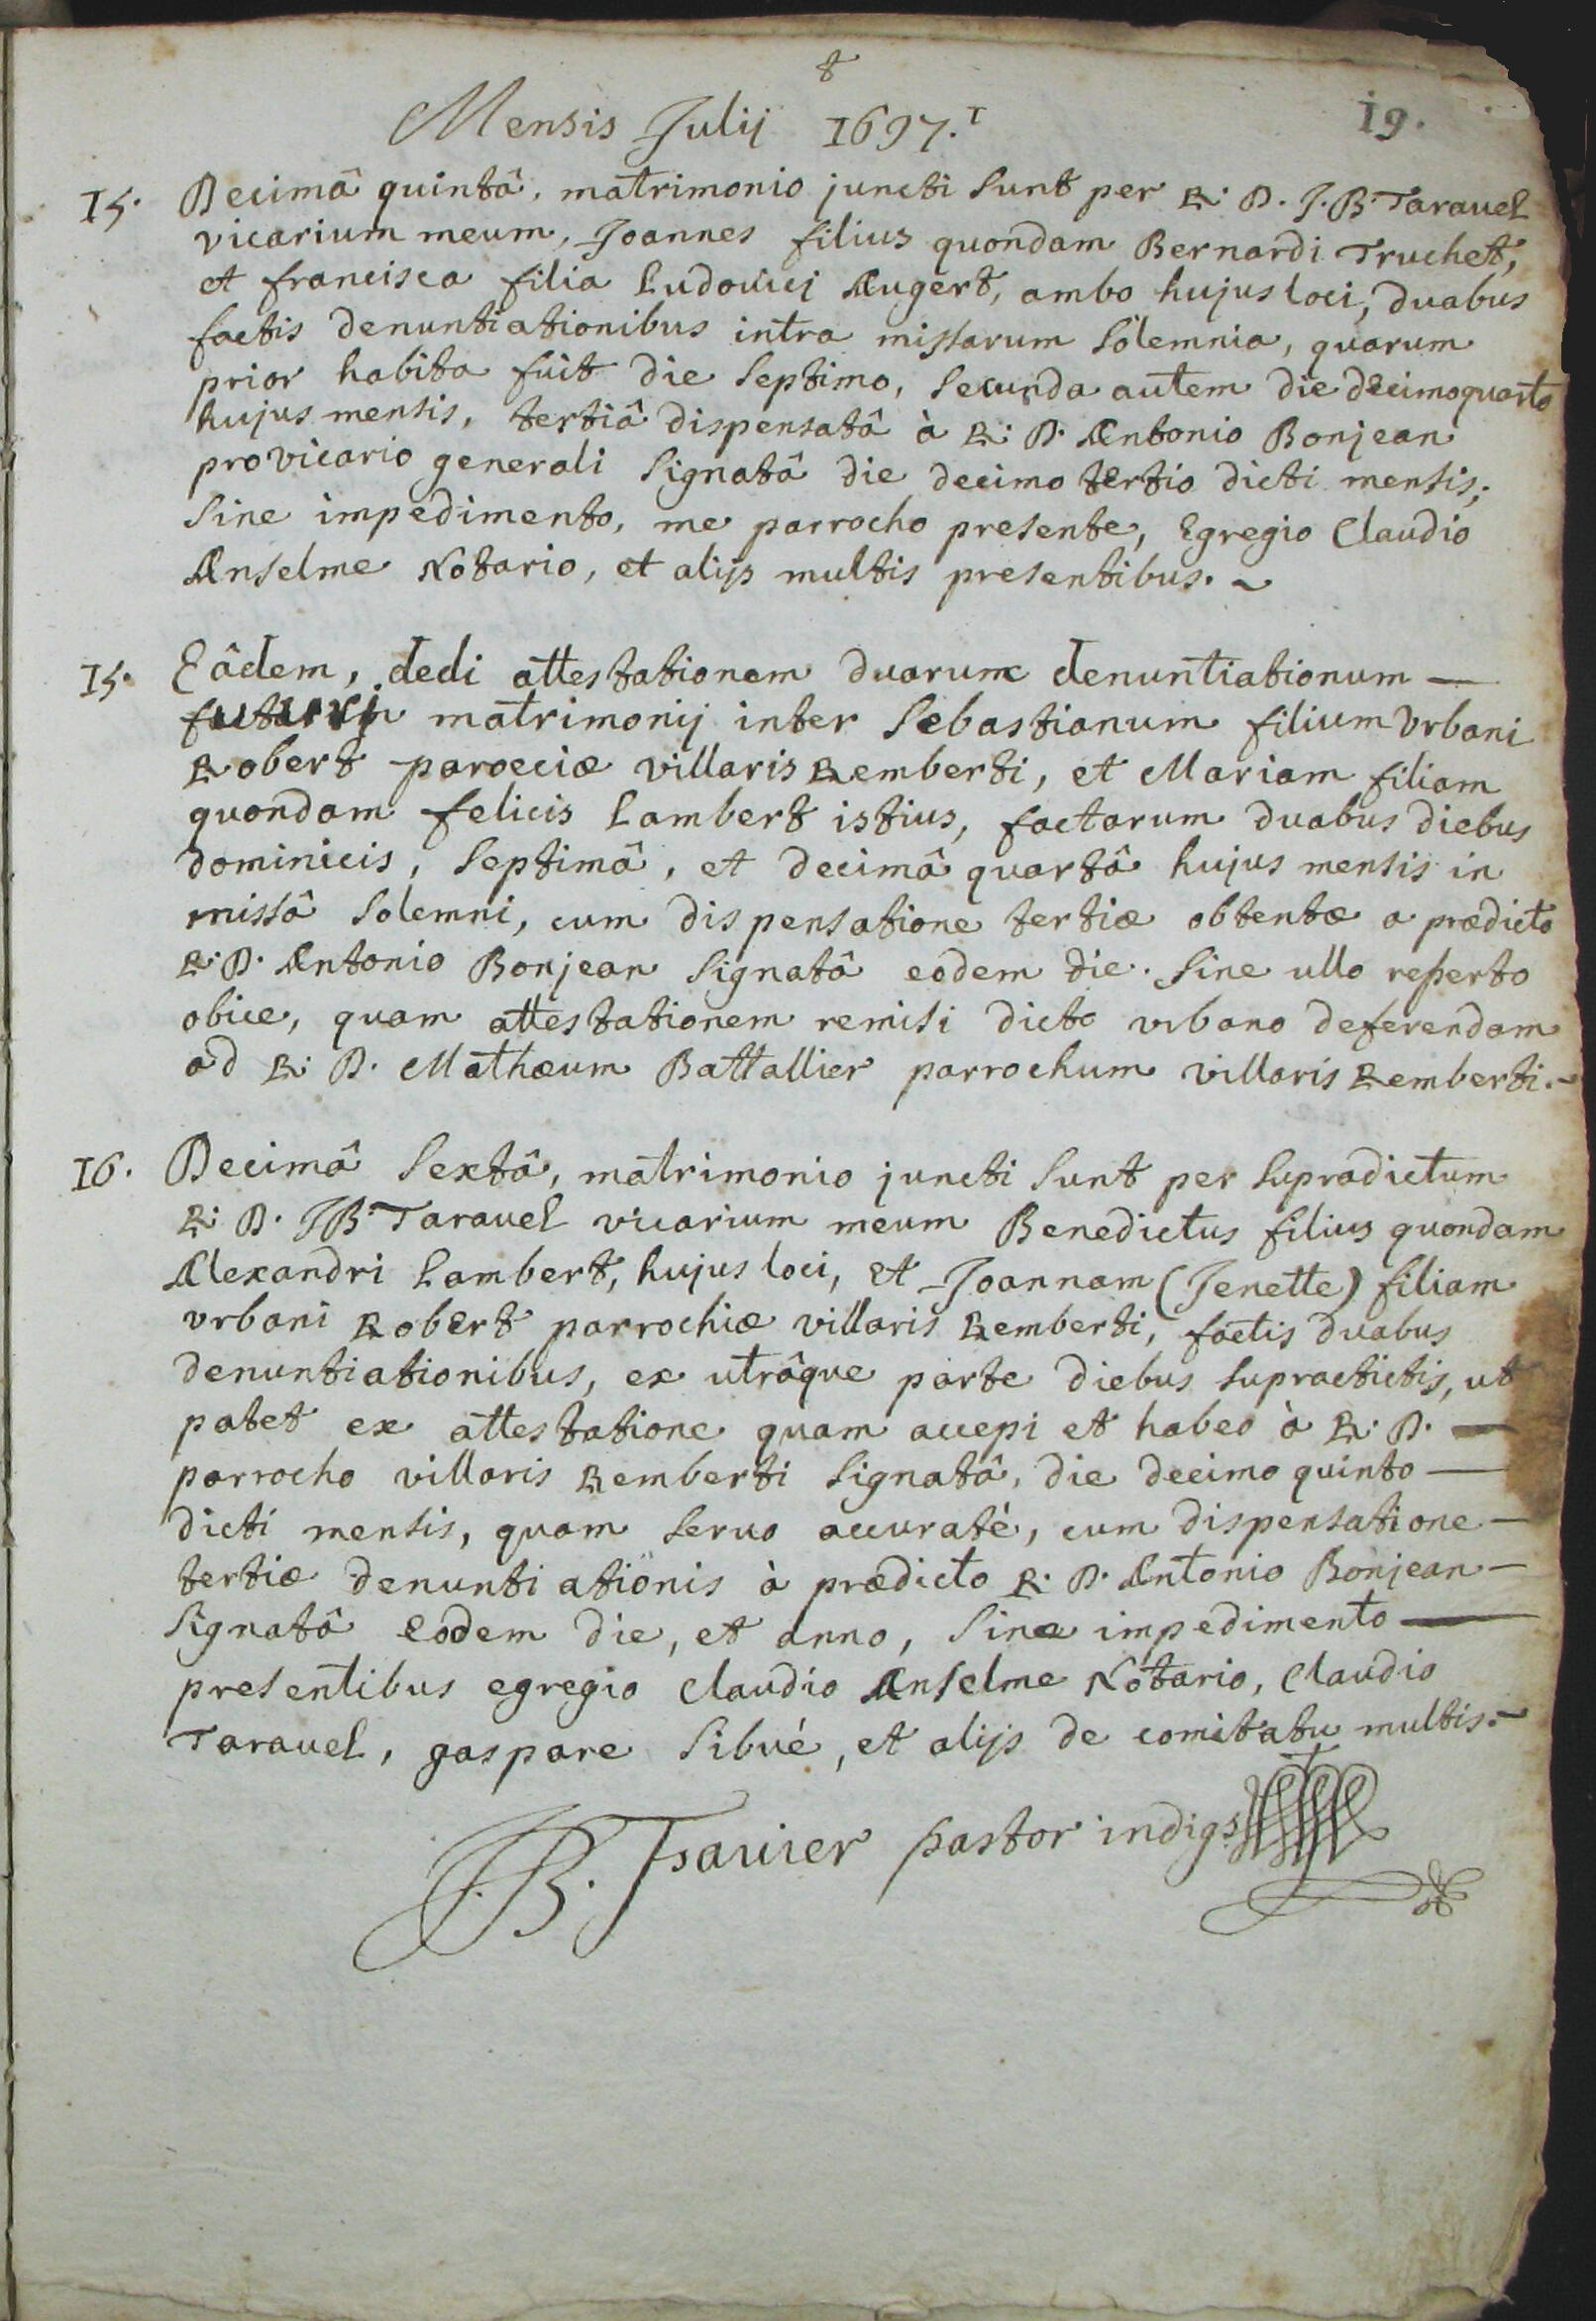 Mensis Julij 1697.
19.
15. Decimâ quintâ, matrimonio juncti sunt per R. D. J. B. Taravel
vicarium meum, Joannes filius quondam Bernardi Truchet,
et francisca filia Ludovici Augert, ambo hujus loci, duabus
factis denuntiationibus intra missarum solemnia, quarum
prior habita fuit die septimo, secunda autem die decimoquarto
hujus mensis, tertiâ dispensatâ à R. D. Antonio Bonjean
provicario generali signatâ die decimo tertio dicti mensis;
sine impedimento, me parrocho presente, Egregio Claudio
Anselme Notario, et alijs multis presentibus. ~
15. Eâdem, dedi attestationem duarum denuntiationum —
futuri matrimonij inter Sebastianum filium Vrbani
Robert paroeciæ villaris Remberti, et Mariam filiam
quondam felicis Lambert istius, factarum duabus diebus
dominicis, septimâ, et decimâ quartâ hujus mensis in
missâ solemni, cum dispensatione tertiæ obtentæ a prædicto
R. D. Antonio Bonjean signatâ eodem die. sine ullo reperto
obice, quam attestationem remisi dicto vrbano deferendam
ad R. D. Mathæum Battallier parrochum villaris Remberti. ~
16. Decimâ sextâ, matrimonio juncti sunt per supradictum
R. D. JB Taravel vicarium meum Benedictus filius quondam
Alexandri Lambert, hujus loci, et Joannam (Jenette) filiam
vrbani Robert parrochiæ villaris Remberti, factis duabus
denuntiationibus, ex utrâque parte diebus supradictis, ut
patet ex attestatione quam accepi et habeo à R. D. —
parrocho villaris Remberti signatâ, die decimo quinto —
dicti mensis, quam servo accuraté, cum dispensatione —
tertiæ denuntiationis à prædicto R. D. Antonio Bonjean —
signatâ eodem die, et anno, sine impedimento —
presentibus egregio Claudio Anselme Notario, Claudio
Taravel, gaspare Sibué, et alijs de comitatu multis. ~
J. B. pastor indigs